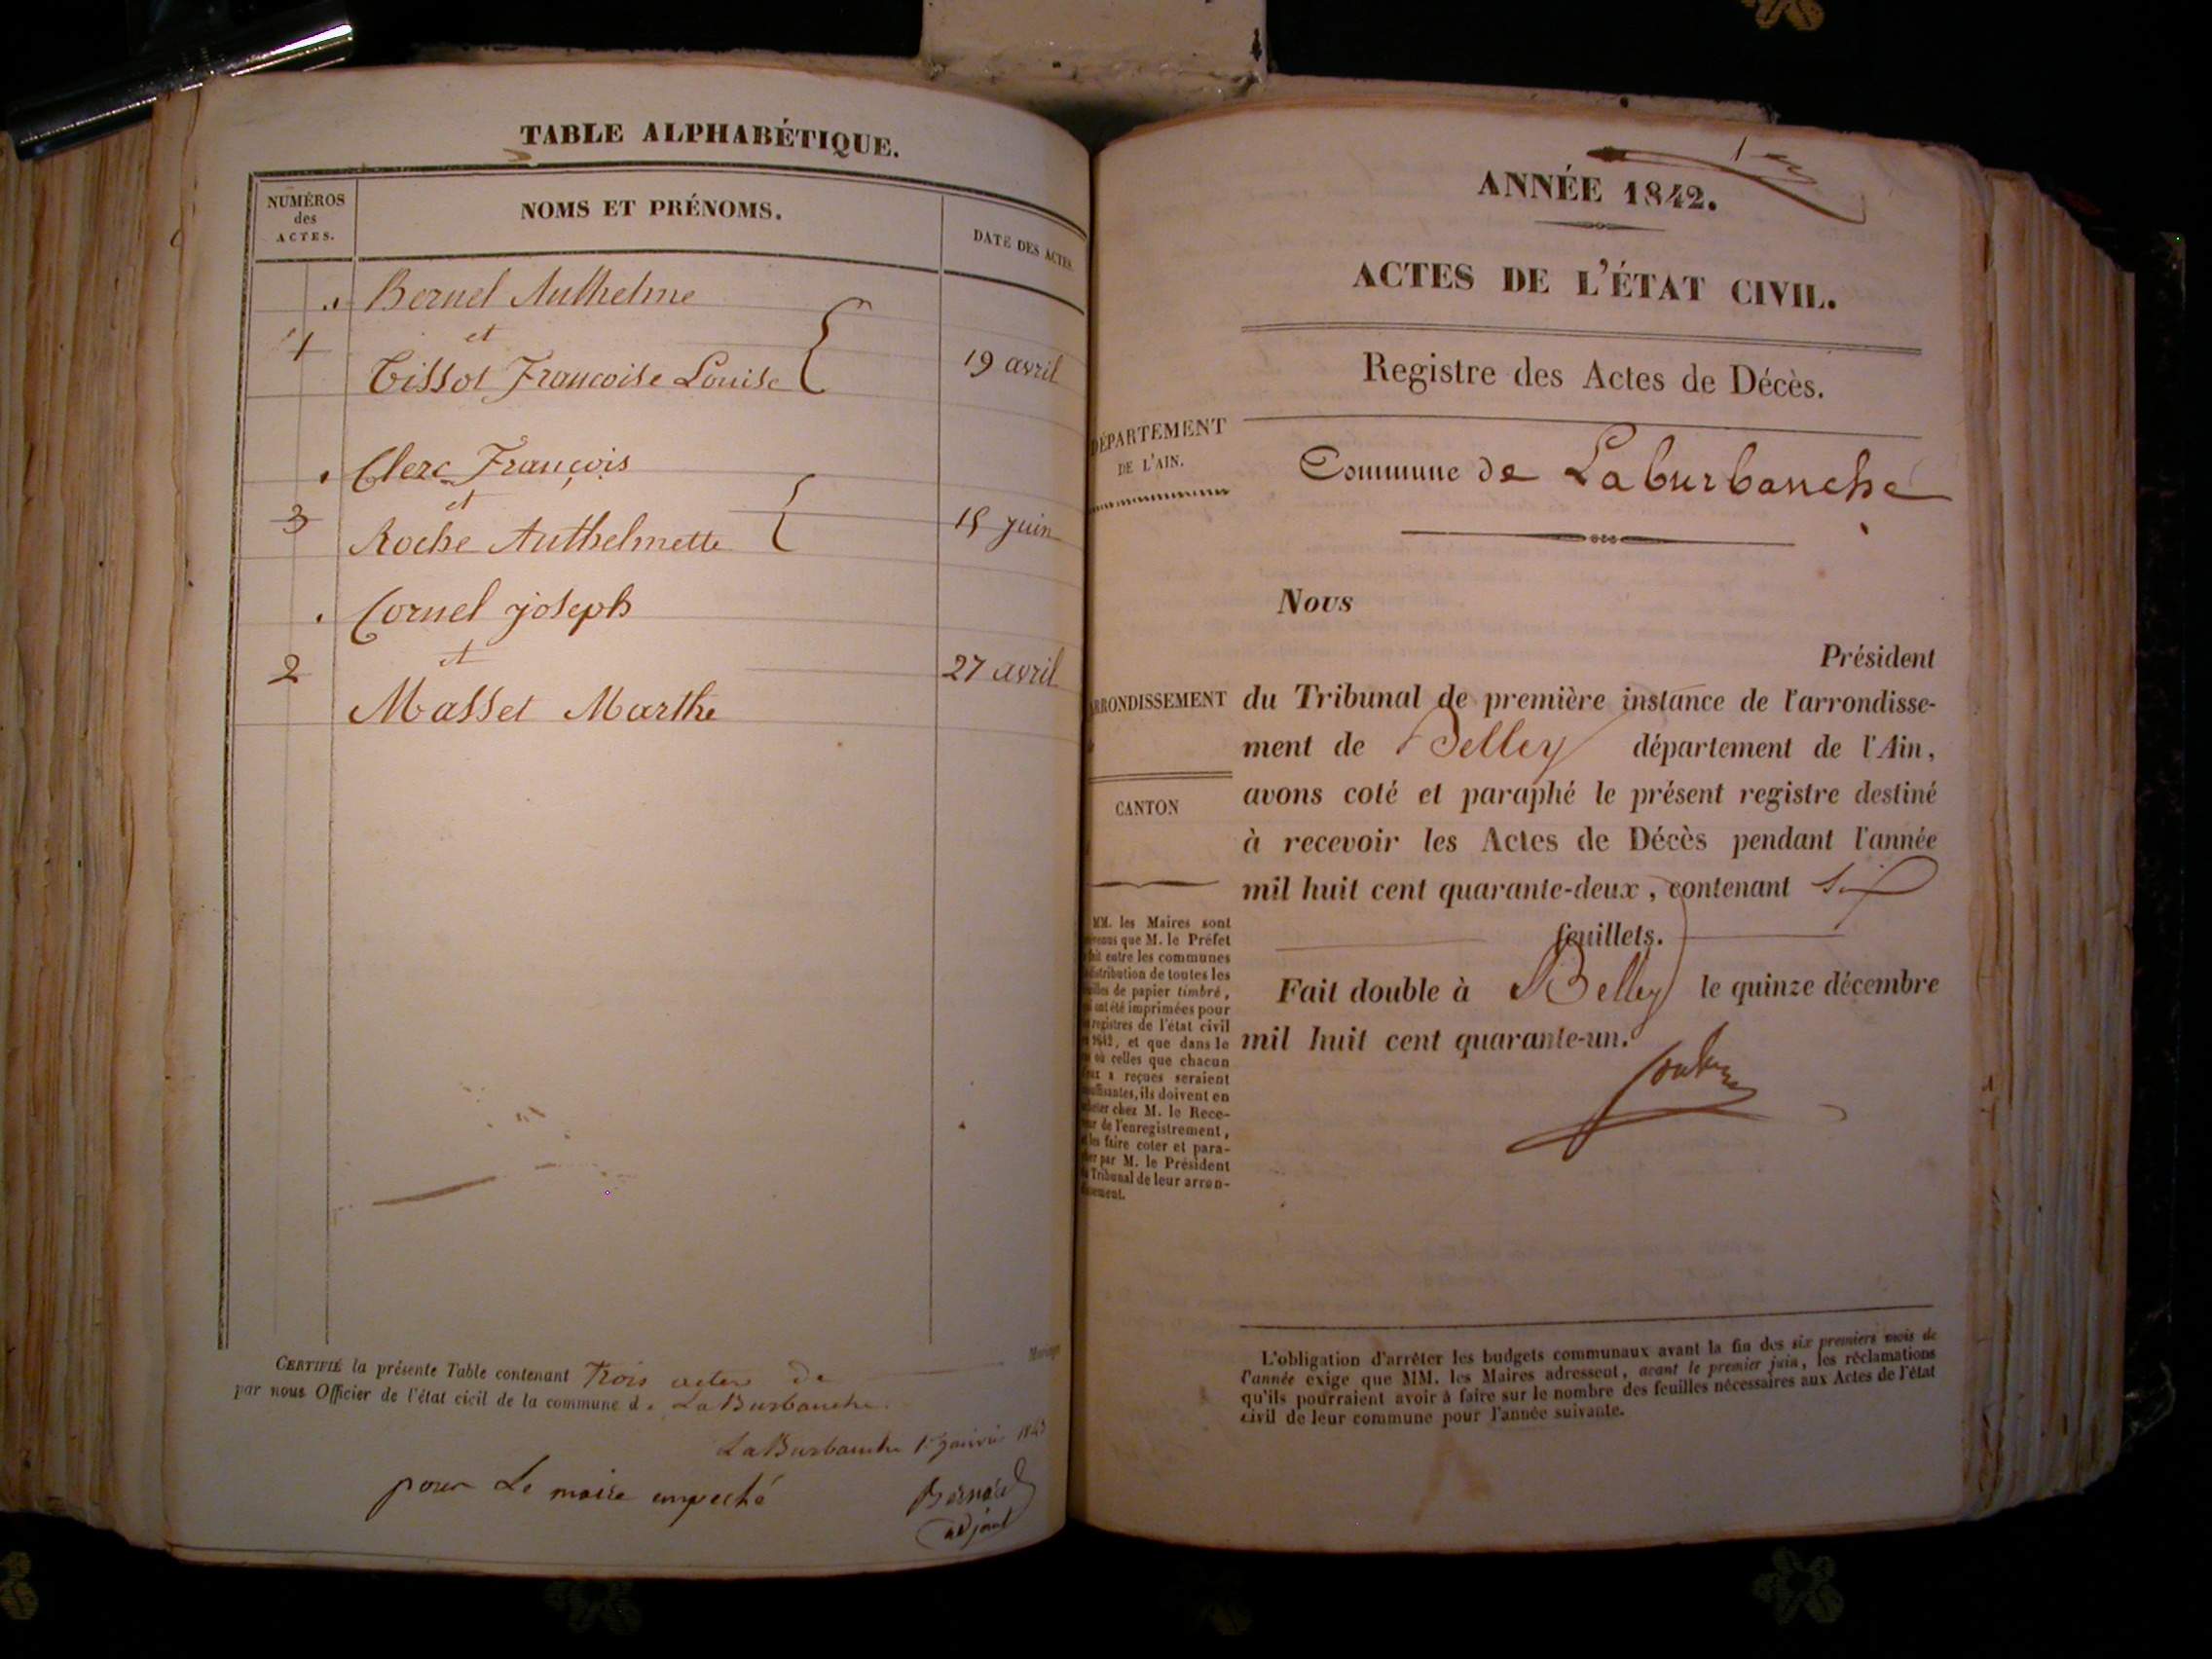 TABLE ALPHABÉTIQUE.
NUMÉROS
des
ACTES.
NOMS ET PRÉNOMS.
DATE DES ACTES.
Bernel Anthelme
et
1
19 avril
Tissot Francoise Louise
Clerc François
et
3
15 juin
Roche Anthelmette
Cornel joseph
et
2
27 avril
Masset Marthe
CERTIFIÉ la présente Table contenant trois actes de
par nous Officier de l'état civil de la commune de LaBurbanche.
LaBurbanche 1er janvier 1843
pour Le maire empeché
adjoint
1er
ANNÉE 1842.
ACTES DE L'ÉTAT CIVIL.
Registre des Actes de Décès.
DÉPARTEMENT
DE L'AIN.
Commune de Laburbanche
Nous
Président
ARRONDISSEMENT
du Tribunal de première instance de l'arrondisse-
ment de Belley département de l'Ain,
avons coté et paraphé le présent registre destiné
CANTON
à recevoir les Actes de Décès pendant l'année
mil huit cent quarante-deux, contenant six
feuillets.
Fait double à Belley le quinze décembre
mil huit cent quarante-un.
MM. les Maires sont
que M. le Préfet
fait entre les communes
distribution de toutes les
feuilles de papier timbré,
ont été imprimées pour
registres de l'état civil
1842, et que dans le
où celles que chacun
a reçues seraient
insuffisantes, ils doivent en
acheter chez M. le Rece-
de l'enregistrement,
les faire coter et para-
pher par M. le Président
Tribunal de leur arron-
dissement.
L'obligation d'arrêter les budgets communaux avant la fin des six premiers mois de
l'année exige que MM. les Maires adressent, avant le premier juin, les réclamations
qu'ils pourraient avoir à faire sur le nombre des feuilles nécessaires aux Actes de l'état
civil de leur commune pour l'année suivante.